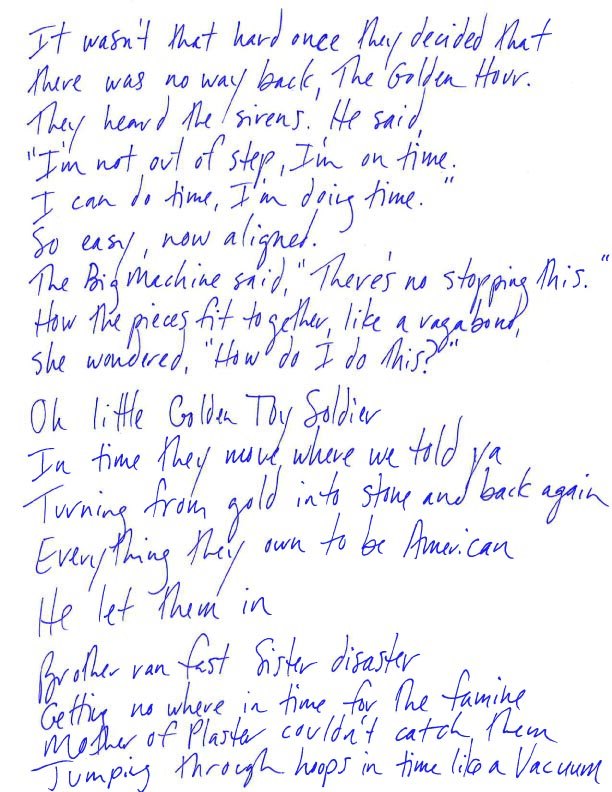 It wasn't that hard once they decided that
there was no way back, The Golden Hour.
They heard the sirens. He said,
"I'm not out of step, I'm on time.
I can do time, I'm doing time."
So easy, now aligned.
The Big Machine said, "There's no stopping this."
How the pieces fit together, like a vagabond,
she wondered, "How do I do this?"
Oh little Golden Toy Soldier
In time they move where we told ya
Turning from gold into stone and back again
Everything they own to be American
He let them in
Brother ran fast Sister disaster
Getting no where in time for the famine
Mother of Plaster couldn't catch them
Jumping through hoops in time like a Vacuum